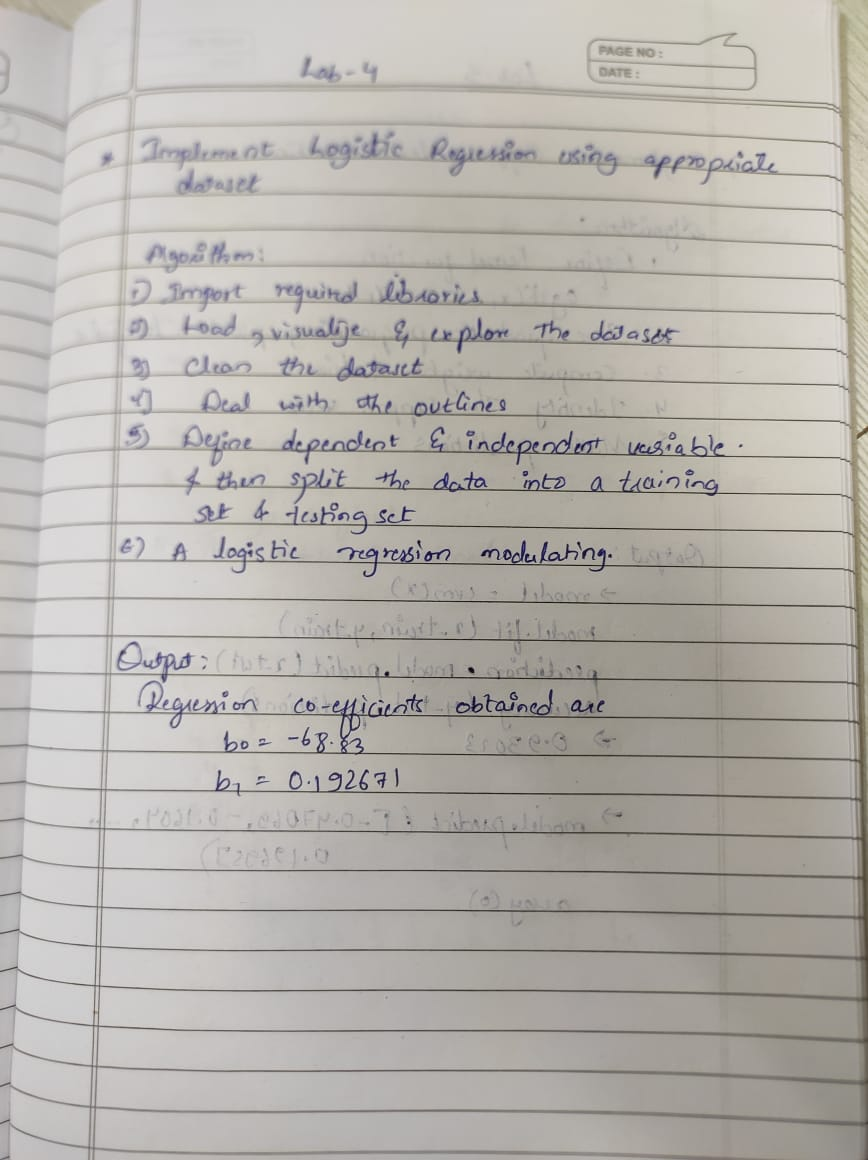 Lab-4
PAGE NO :
DATE :
* Implement Logistic Regression using appropriate
dataset
Algorithm:
1) Import required libraries
2) Load, visualize & explore the dataset
3) Clean the dataset
4) Deal with the outlines
5) Define dependent & independent variable.
& then split the data into a training
set & testing set
6) A logistic regression modulating.
Output:
Regression co-efficients obtained are
b0 = -68.83
b1 = 0.192671